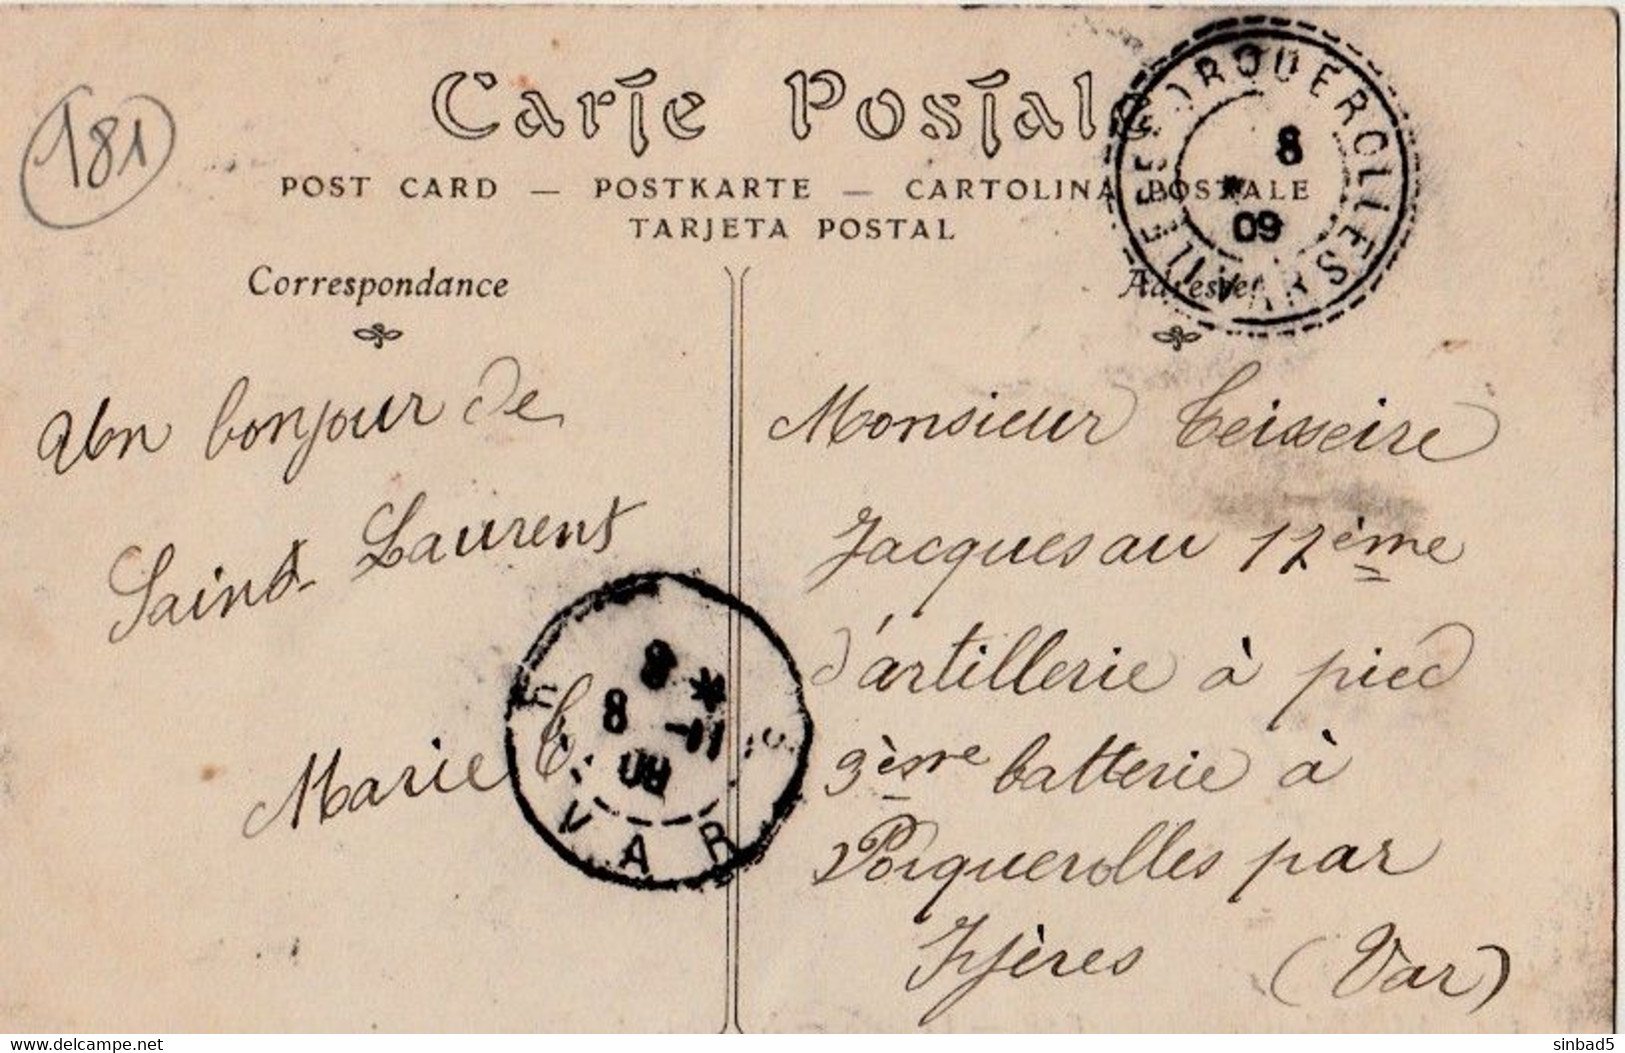 181
Carte Postale
POST CARD — POSTKARTE — CARTOLINA POSTALE
TARJETA POSTAL
PORQUEROLLES
8
09
VAR
Correspondance
Adresse
Un bonjour de
Saint Laurent
Marie T.
8
8 -11
09
VAR
Monsieur Teisseire
Jacques au 12ème
d'artillerie à pied
3ème batterie à
Porquerolles par
Hyères (Var)
www.delcampe.net
sinbad5